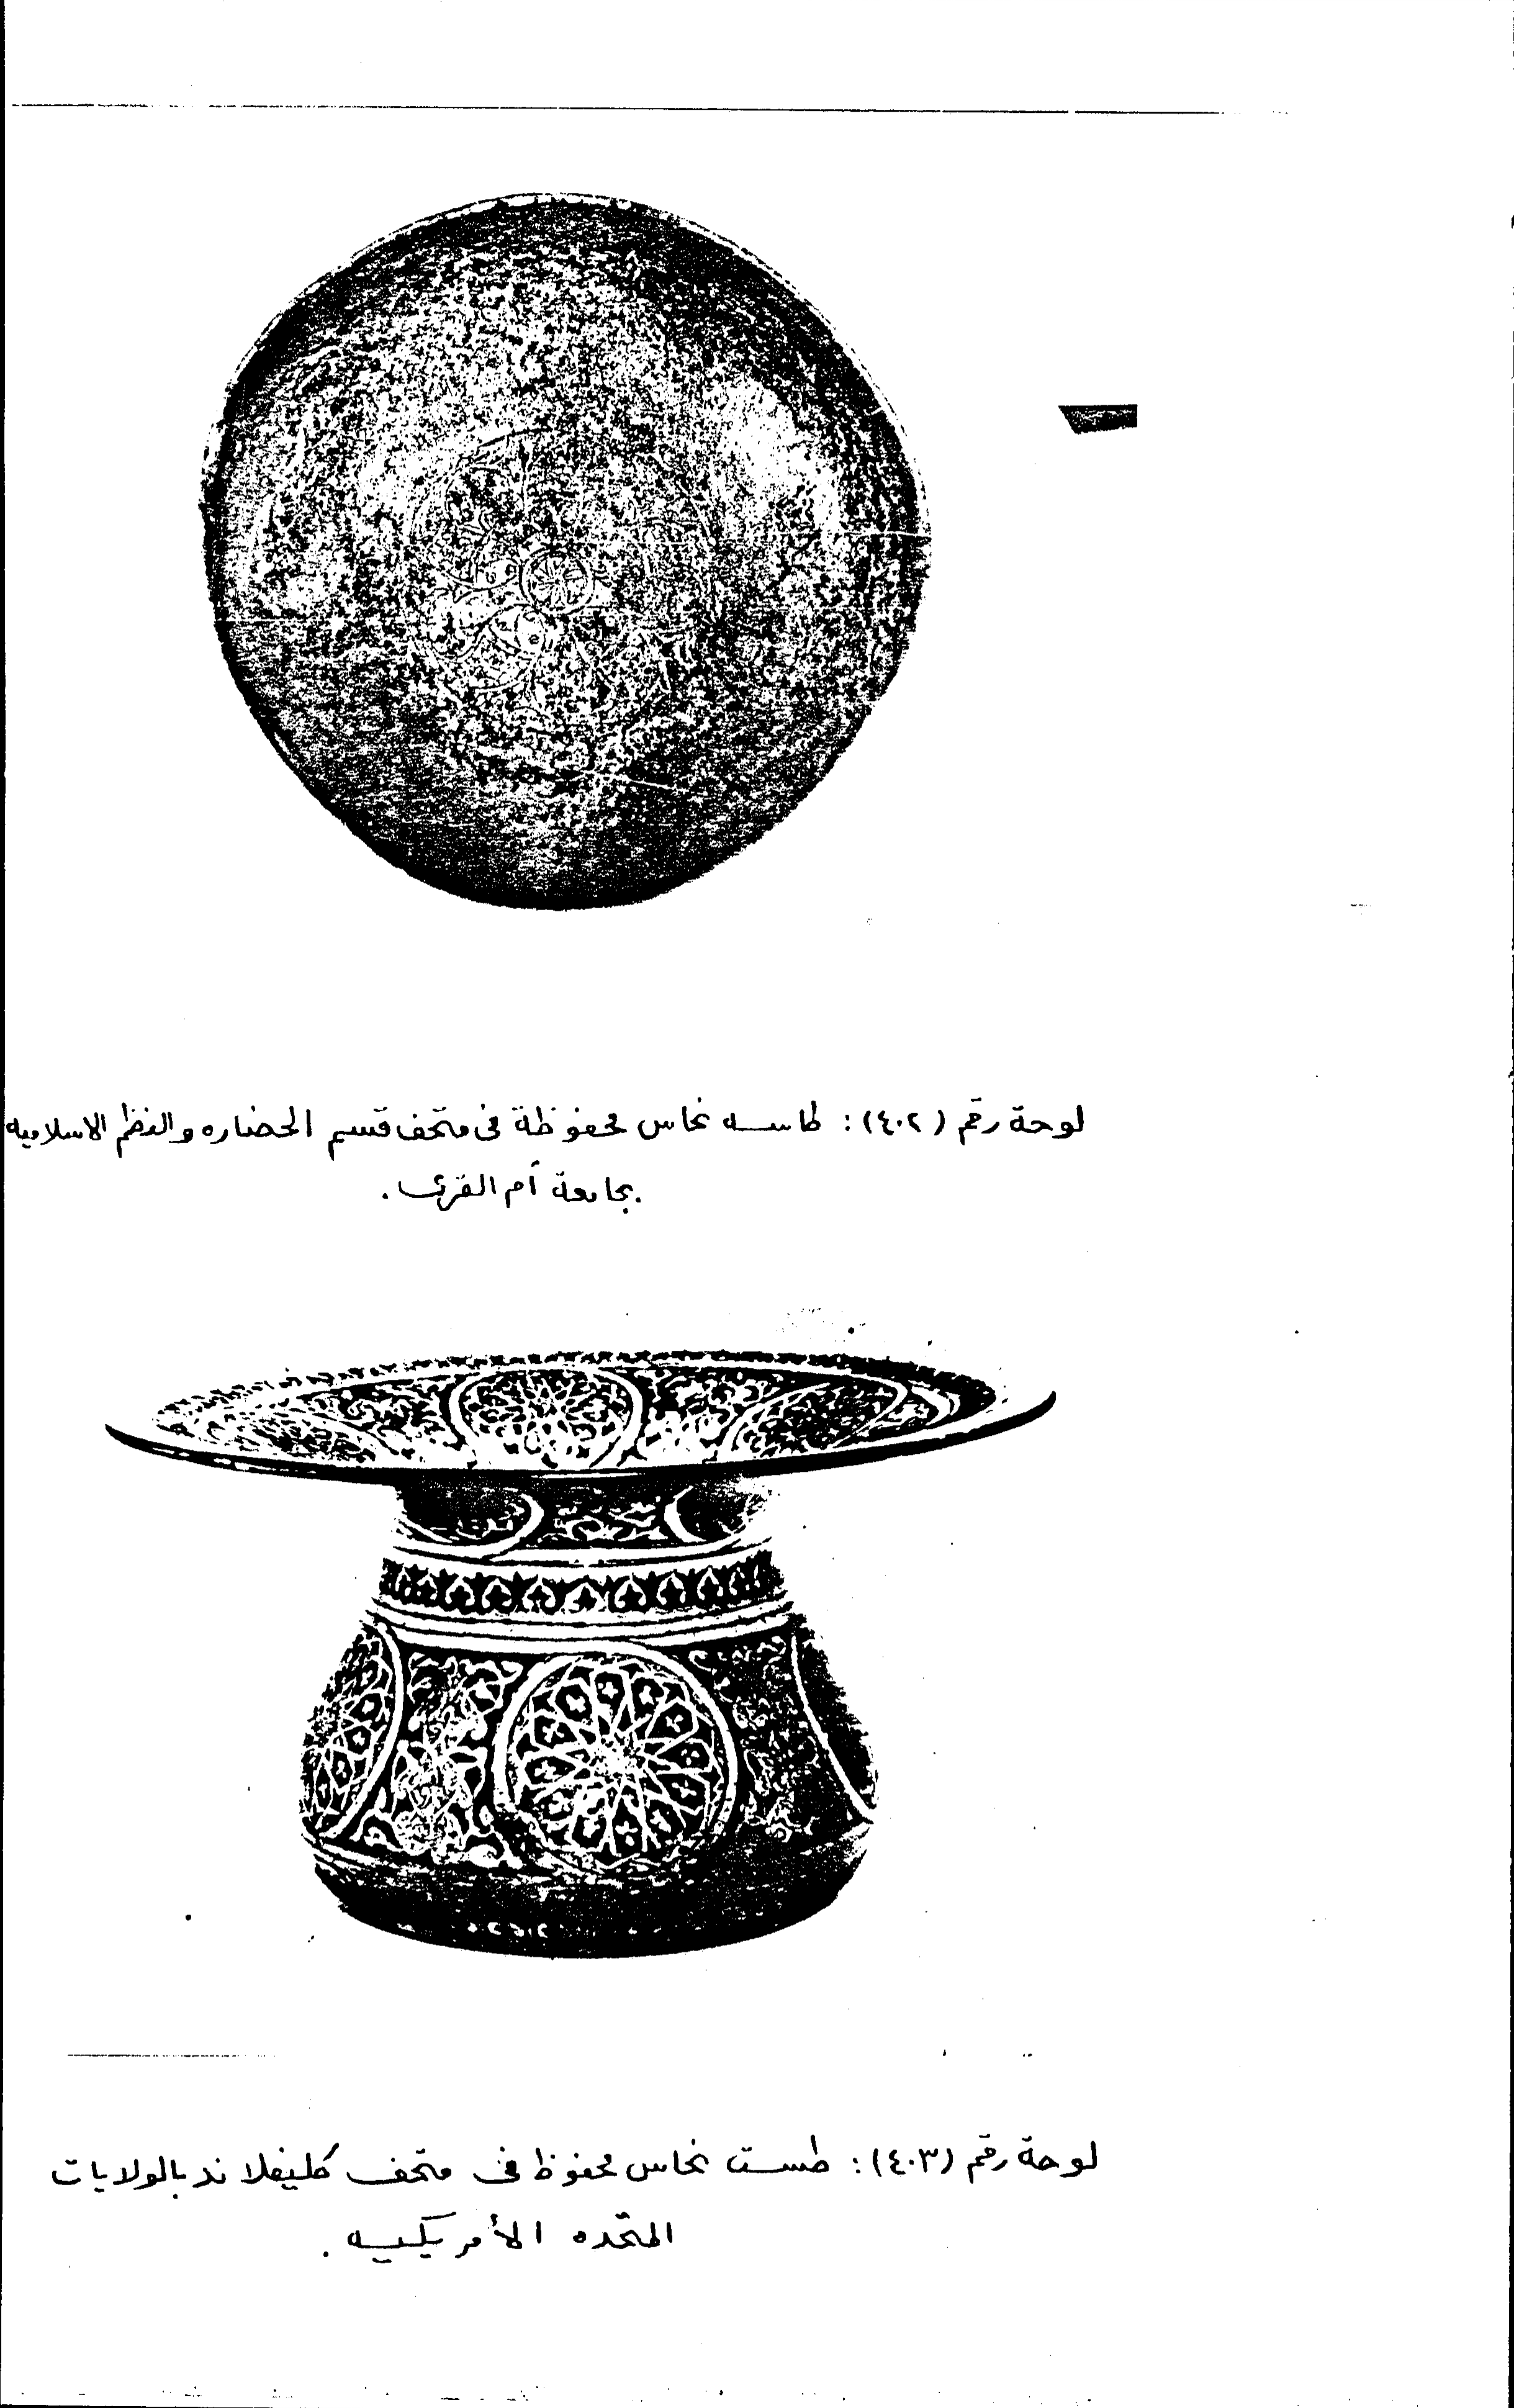 لوحة رقم (٤٠٢): طاسه نحاس محفوظة فى متحف قسم الحضاره والنظم الاسلاميه
بجامعة أم القرى.
لوحة رقم (٤٠٣): طست نحاس محفوظ فى متحف كليفلاند بالولايات
المتحده الأمريكيه.